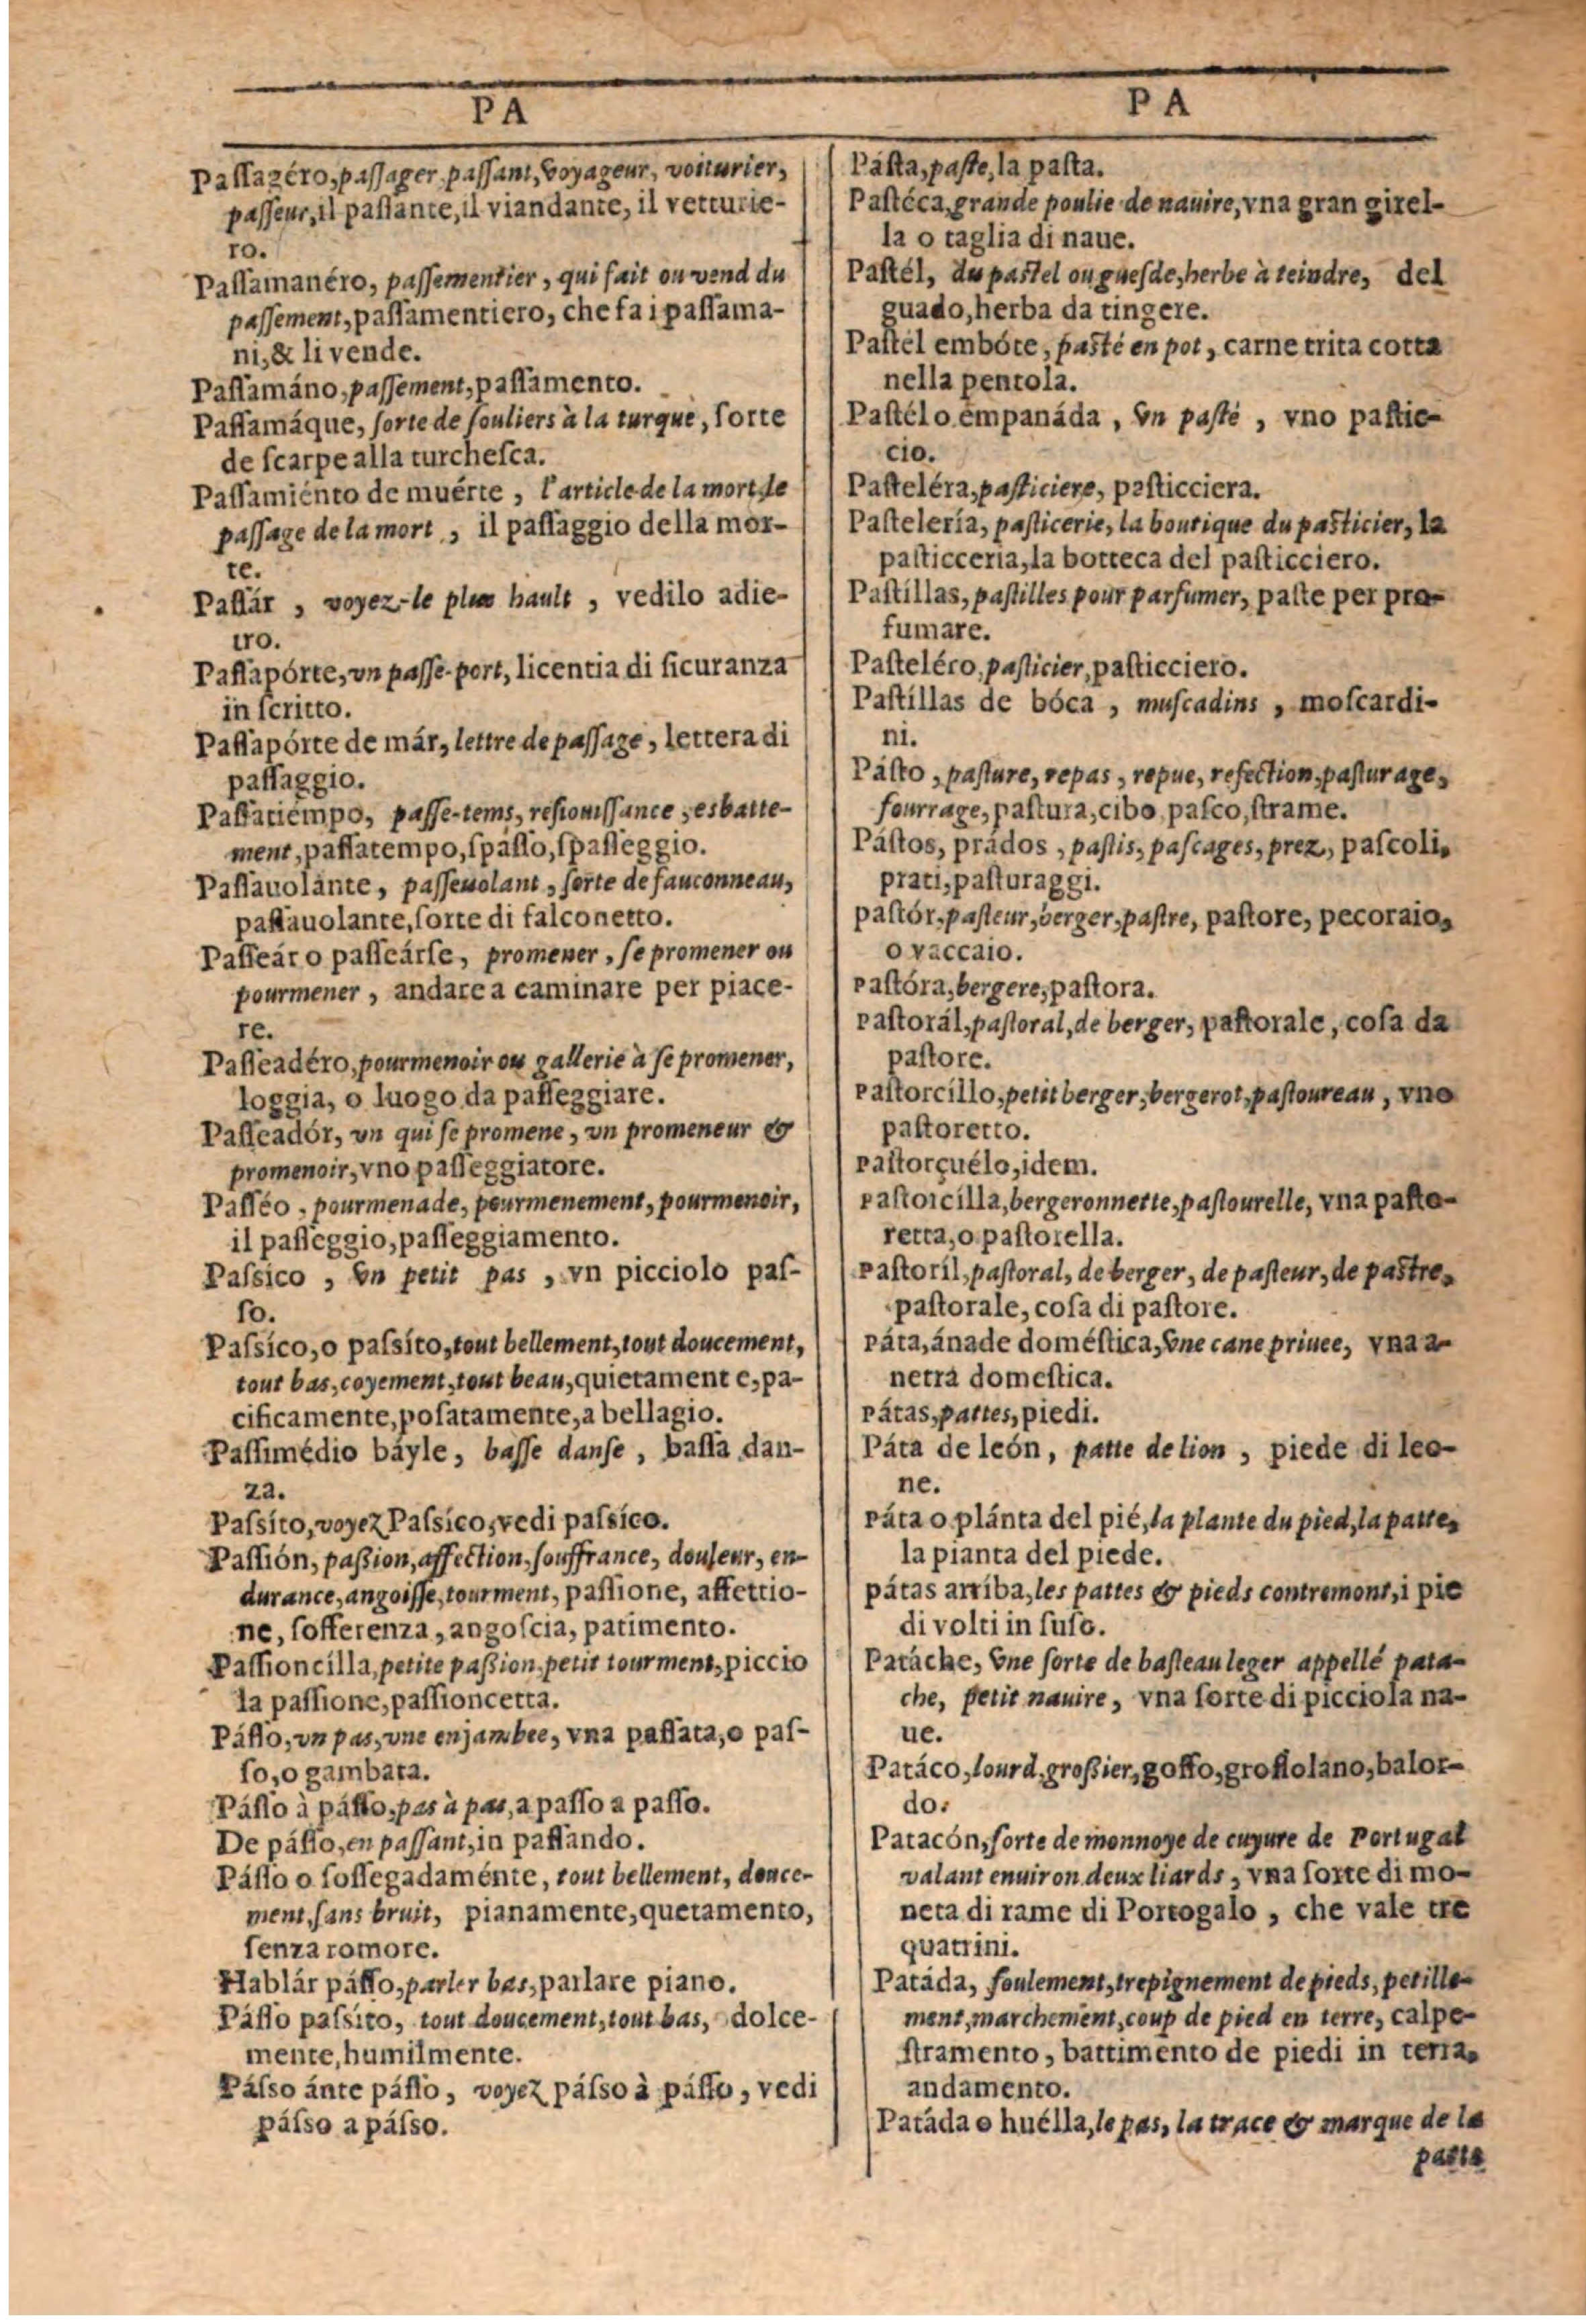 PA
Paſſagéro, paſſager, paſſant, voyageur, voiturier,
paſſeur, il paſſante, il viandante, il vetturie-
ro.
Paſſamanéro, paſſementier, qui fait ou vend du
paſſement, paſſamentiero, che fa i paſſama-
ni, & li vende.
Paſſamáno, paſſement, paſſamento.
Paſſamáque, ſorte de ſouliers à la turque, ſorte
de ſcarpe alla turcheſca.
Paſſamiénto de muérte, l'article de la mort, le
paſſage de la mort, il paſſaggio della mor-
te.
Paſſár, voyez-le plus hault, vedilo adie-
tro.
Paſſapórte, vn paſſe-port, licentia di ſicuranza
in ſcritto.
Paſſapórte de már, lettre de paſſage, lettera di
paſſaggio.
Paſſatiémpo, paſſe-tems, reſiouiſſance, esbatte-
ment, paſſatempo, ſpaſſo, ſpaſſeggio.
Paſſauolánte, paſſeuolant, ſorte de fauconneau,
paſſauolante, ſorte di falconetto.
Paſſeár o paſſeárſe, promener, ſe promener ou
pourmener, andare a caminare per piace-
re.
Paſſeadéro, pourmenoir ou gallerie à ſe promener,
loggia, o luogo da paſſeggiare.
Paſſeadór, vn qui ſe promene, vn promeneur &
promenoir, vno paſſeggiatore.
Paſſéo, pourmenade, pourmenement, pourmenoir,
il paſſeggio, paſſeggiamento.
Paſsico, vn petit pas, vn picciolo paſ-
ſo.
Paſsíco, o paſsíto, tout bellement, tout doucement,
tout bas, coyement, tout beau, quietamente, pa-
cificamente, poſatamente, a bellagio.
Paſſimédio báyle, baſſe danſe, baſſa dan-
za.
Paſsíto, voyez Paſsico, vedi paſsíco.
Paſſión, paßion, affection, ſouffrance, douleur, en-
durance, angoiſſe, tourment, paſſione, affettio-
ne, ſofferenza, angoſcia, patimento.
Paſſioncilla, petite paßion, petit tourment, piccio
la paſſione, paſſioncetta.
Páſſo, vn pas, vne enjambee, vna paſſata, o paſ-
ſo, o gambata.
Páſſo à páſſo, pas à pas, a paſſo a paſſo.
De páſſo, en paſſant, in paſſando.
Páſſo o ſoſſegadaménte, tout bellement, douce-
ment, ſans bruit, pianamente, quetamento,
ſenza romore.
Hablár páſſo, parler bas, parlare piano.
Páſſo paſsito, tout doucement, tout bas, dolce-
mente, humilmente.
Páſso ánte páſſo, voyez páſso à páſſo, vedi
páſso a páſso.
PA
Pásta, paſte, la paſta.
Paſtéca, grande poulie de nauire, vna gran girel-
la o taglia di naue.
Paſtél, du paſtel ou gueſde, herbe à teindre, del
guado, herba da tingere.
Paſtél embóte, paſté en pot, carne trita cotta
nella pentola.
Paſtél o empanáda, vn paſté, vno paſtic-
cio.
Paſteléra, paſticiere, paſticciera.
Paſtelería, paſticerie, la boutique du paſticier, la
paſticceria, la botteca del paſticciero.
Paſtíllas, paſtilles pour parfumer, paſte per pro-
fumare.
Paſteléro, paſticier, paſticciero.
Paſtíllas de bóca, muſcadins, moſcardi-
ni.
Páſto, paſture, repas, repue, refection, paſturage,
fourrage, paſtura, cibo, paſco, ſtrame.
Páſtos, prádos, paſtis, paſcages, prez, paſcoli,
prati, paſturaggi.
paſtór, paſteur, berger, paſtre, paſtore, pecoraio,
o vaccaio.
Paſtóra, bergere, paſtora.
Paſtorál, paſtoral, de berger, paſtorale, coſa da
paſtore.
Paſtorcíllo, petit berger, bergerot, paſtoureau, vno
paſtoretto.
Paſtorçuélo, idem.
Paſtorcilla, bergeronnette, paſtourelle, vna paſto-
retta, o paſtorella.
Paſtoríl, paſtoral, de berger, de paſteur, de paſtre,
paſtorale, coſa di paſtore.
Páta, ánade doméſtica, vne cane priuee, vna a-
netra domeſtica.
Pátas, pattes, piedi.
Páta de león, patte de lion, piede di leo-
ne.
Páta o plánta del pié, la plante du pied, la patte,
la pianta del piede.
pátas arriba, les pattes & pieds contremont, i pie
di volti in ſuſo.
Patáche, vne ſorte de baſteau leger appellé pata-
che, petit nauire, vna ſorte di picciola na-
ue.
Patáco, lourd, großier, goffo, groſſolano, balor-
do.
Patacón, ſorte de monnoye de cuyure de Portugal
valant enuiron deux liards, vna ſorte di mo-
neta di rame di Portogalo, che vale tre
quattrini.
Patáda, foulement, trepignement de pieds, petille-
ment, marchement, coup de pied en terre, calpe-
ſtramento, battimento de piedi in terra,
andamento.
Patáda o huélla, le pas, la trace & marque de la
patte